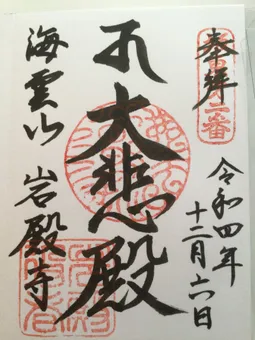 奉拝
令和四年
十二月六日
大悲殿
海雲山 岩殿寺